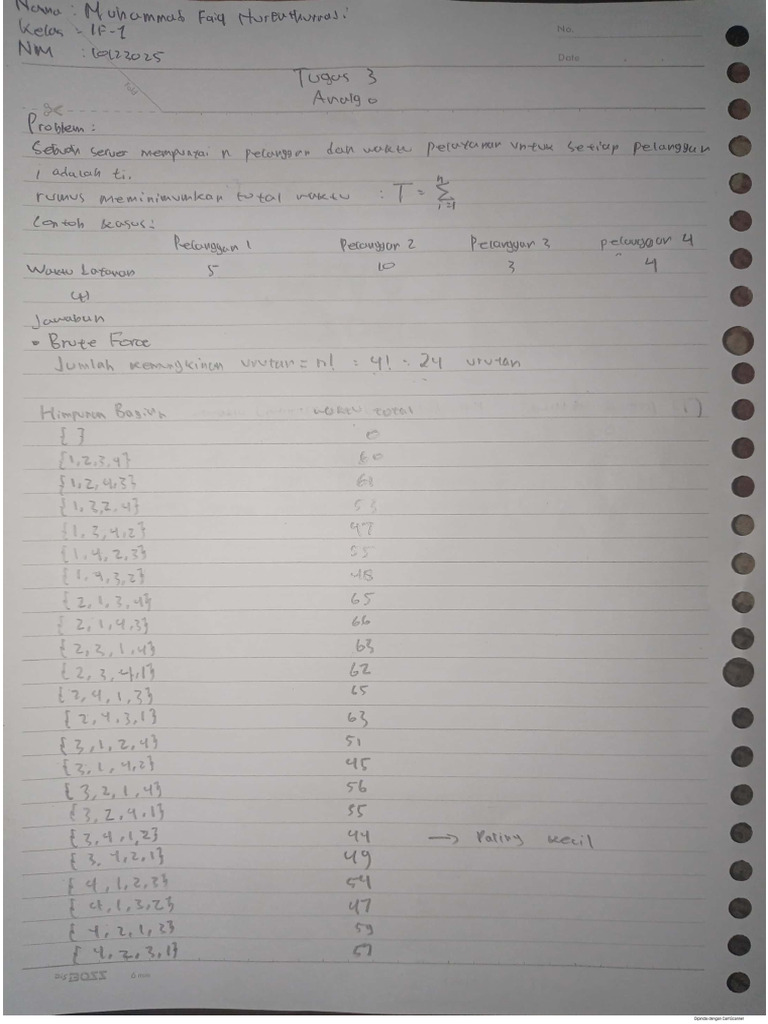 Nama : Muhammad Faiq
Kelas : IF-1
NIM : 10123025
No.
Date
Tugas 3
Analgo
Problem :
Sebuah server mempunyai n pelanggan dan waktu pelayanan untuk setiap pelanggan
i adalah ti.
rumus meminimumkan total waktu : T = Σ n i=1
Contoh kasus :
Pelanggan 1 Pelanggan 2 Pelanggan 3 pelanggan 4
Waktu Layanan 5 10 3 4
(t)
Jawaban
• Brute Force
Jumlah kemungkinan urutan = n! = 4! = 24 urutan
Himpunan Bagian waktu total
{ } 0
{1,2,3,4} 60
{1,2,4,3} 61
{1,3,2,4} 53
{1,3,4,2} 47
{1,4,2,3} 55
{1,4,3,2} 48
{2,1,3,4} 65
{2,1,4,3} 66
{2,3,1,4} 63
{2,3,4,1} 62
{2,4,1,3} 65
{2,4,3,1} 63
{3,1,2,4} 51
{3,1,4,2} 45
{3,2,1,4} 56
{3,2,4,1} 55
{3,4,1,2} 44 → Paling kecil
{3,4,2,1} 49
{4,1,2,3} 54
{4,1,3,2} 47
{4,2,1,3} 59
{4,2,3,1} 57
BOSS 6 mm
Dipindai dengan CamScanner